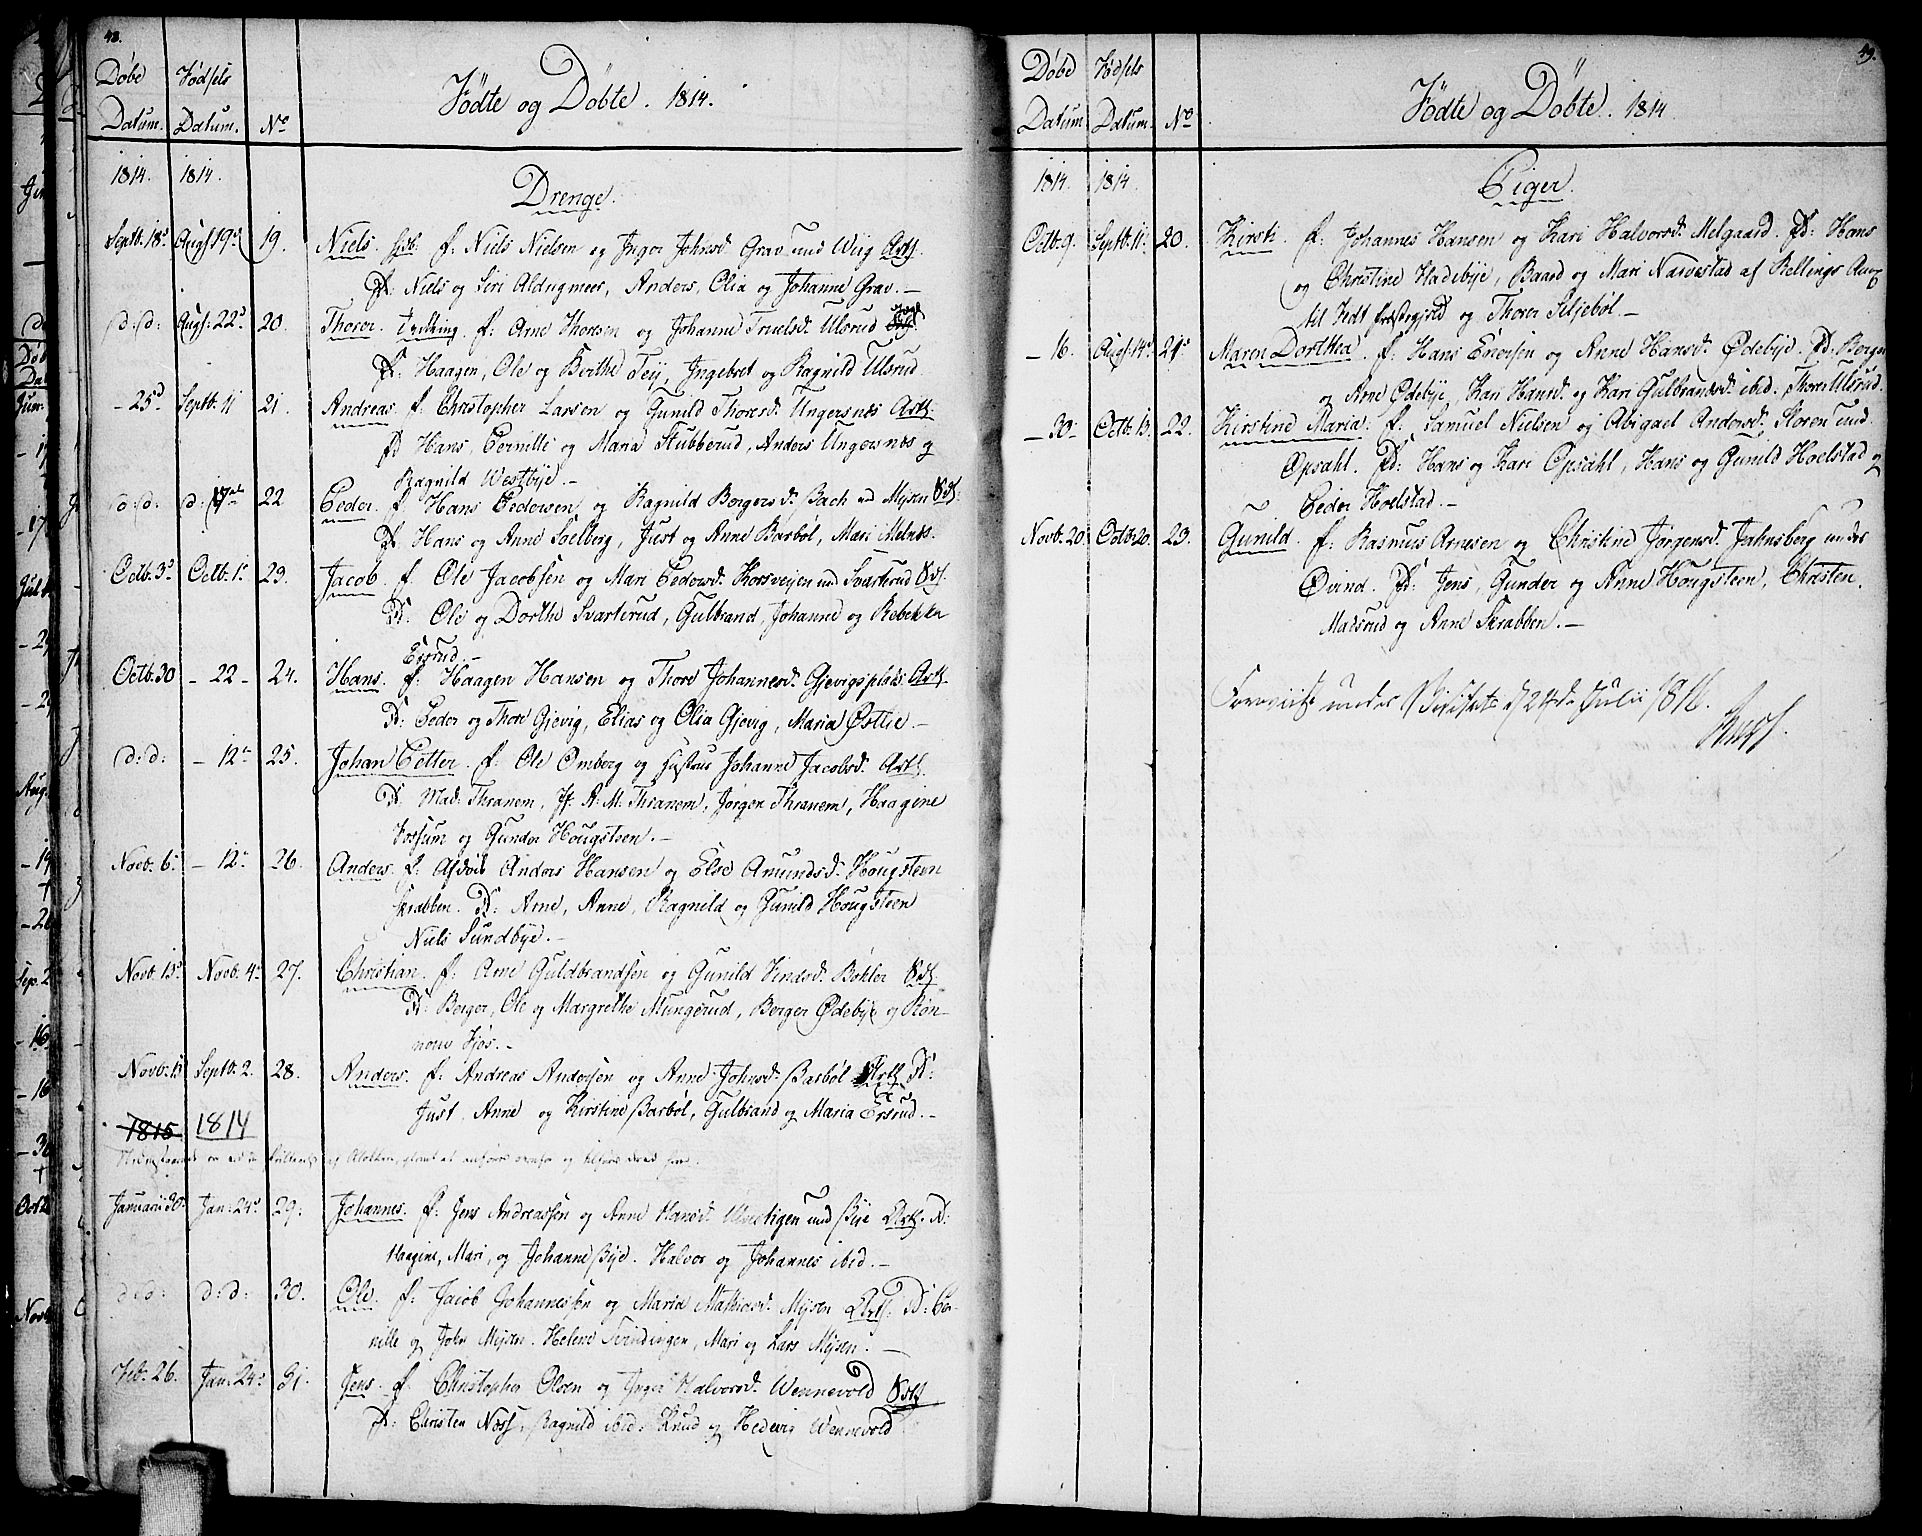 48.
Døbe Fødsels
Datum. Datum. No
Födte og Döbte. 1814.
1814. 1814.
Drenge.
Septb. 18d Aug 19d 19. Niels. f: Niels Nielsen og Inger Johnsd. Grav und Wiig
F: Niels og Siri Aldugmeer, Anders, Olia og Johanne Grav. -
d: d: Aug: 22d 20. Thorer. f: Arne Thorsen og Johanne Truelsd. Ulsrud
F: Haagen, Ole og Berthe Teij, Ingebret og Ragnild Ulsrud
- 25d Septb. 11 21. Andreas. f: Christopher Larsen og Gunild Thoresd. Ungersnes
F Hans, Pernille og Maria Stubberud, Anders Ungersnes og
Ragnild Westbye. -
d: d: d: 22 Peder. f. Hans Pedersen og Ragnild Borgersd. Bach ud Mysen
F. Hans og Anne Soelberg, Just og Anne Barbøl, Mari Melnes.
Octb. 3d Octb. 1 23. Jacob. f. Ole Jacobsen og Mari Pedersd. Korsveien und Svarterud
F: Ole og Dorthe Svarterud, Gulbrand, Johanne og Rebekka
Essrud. -
Octb. 30 - 22 - 24. Hans. f. Haagen Hansen og Thore Johannesd. Gjevigsplads
F: Peder og Thore Gjevig, Elias og Olia Gjevig, Maria Østlie. -
d: d: - 12 25. Johan Petter. f. Ole Omberg og Hustrue Johanne Jacobsd.
F: Mad: Thranem, A: M: Thranem, Jørgen Thranem, Haagine
Fossum og Gunder Hougsteen. -
Novb. 6 - 12 26. Anders. f: Anders Hansen og Else Amundsd. Hougsteen
Skrabben. F: Arne, Anne, Ragnild og Gunild Hougsteen
Niels Sundbye. -
Novb. 13 Novb. 4 27. Christian. f. Arne Guldbrandsen og Gunild Bøhler
F: Borger, Ole og Margrethe Mungsrud, Borger Ødebye og Rön-
none Fjøs. -
Novb. 13 Septb. 2. 28. Anders. f. Andreas Andersen og Anne Johnsd. Barböl F:
Just, Anne og Kirstine Barböl, Gulbrand og Maria Essrud. -
1815 1814
Januarii 30. Jan: 24 29. Johannes. f. Jens Andreassen og Anne Hansd. und Bye F:
Haagine, Mari, og Johanne Bye. Halvor og Johannes ibid. -
d: d: d: d: 30. Ole. f. Jacob Johannessen og Maria Mathiesd. Mysen F: Per-
nille og John Mysen. Helene Tvindingen, Mari og Lars Mysen. -
Feb. 26. Jan: 24 31. Jens. f. Christopher Olsen og Inger Halvorsd. Wennevold
F: Christen Næss, Ragnild ibid: Knud og Hedevig Wennevold
49.
Døbe Fødsels
Datum Datum. No
Födte og Döbte. 1814
1814. 1814.
Piger.
Octb. 9. Septb. 11. 20. Kirsti. f: Johannes Hansen og Kari Halvorsd. Melgaard. F: Hans
og Christine Hadebye, Baard og Mari Narvestad af Rellings
til Jedt præstegjeld og Thorer Siljeböl. -
- 16. Aug 14 21 Maren Dorthea. f: Hans Ensersen og Anne Hansd. Ødebye. F: Borger
og Arne Ødebye, Kari Hansd. og Kari Gulbrandsd. ibid. Thore Ulsrud.
- 30 - Octb. 13. 22. Kirstine Maria. f. Samuel Nielsen og Abigael Andersd. Storen und
Opsahl. F: Hans og Kari Opsahl, Hans og Gunild Hoelstad og
Peder Hoelstad. -
Novb. 20. Octb. 20. 23. Gunild. f. Rasmus Arnesen og Christine Jørgensd. Jahnsberg under
Øvind. F: Jens, Gunder og Anne Hougsteen, Christen
Madsrud og Anne Skrabben. -
Foreviist under Visitats d 24de Julii 1816.